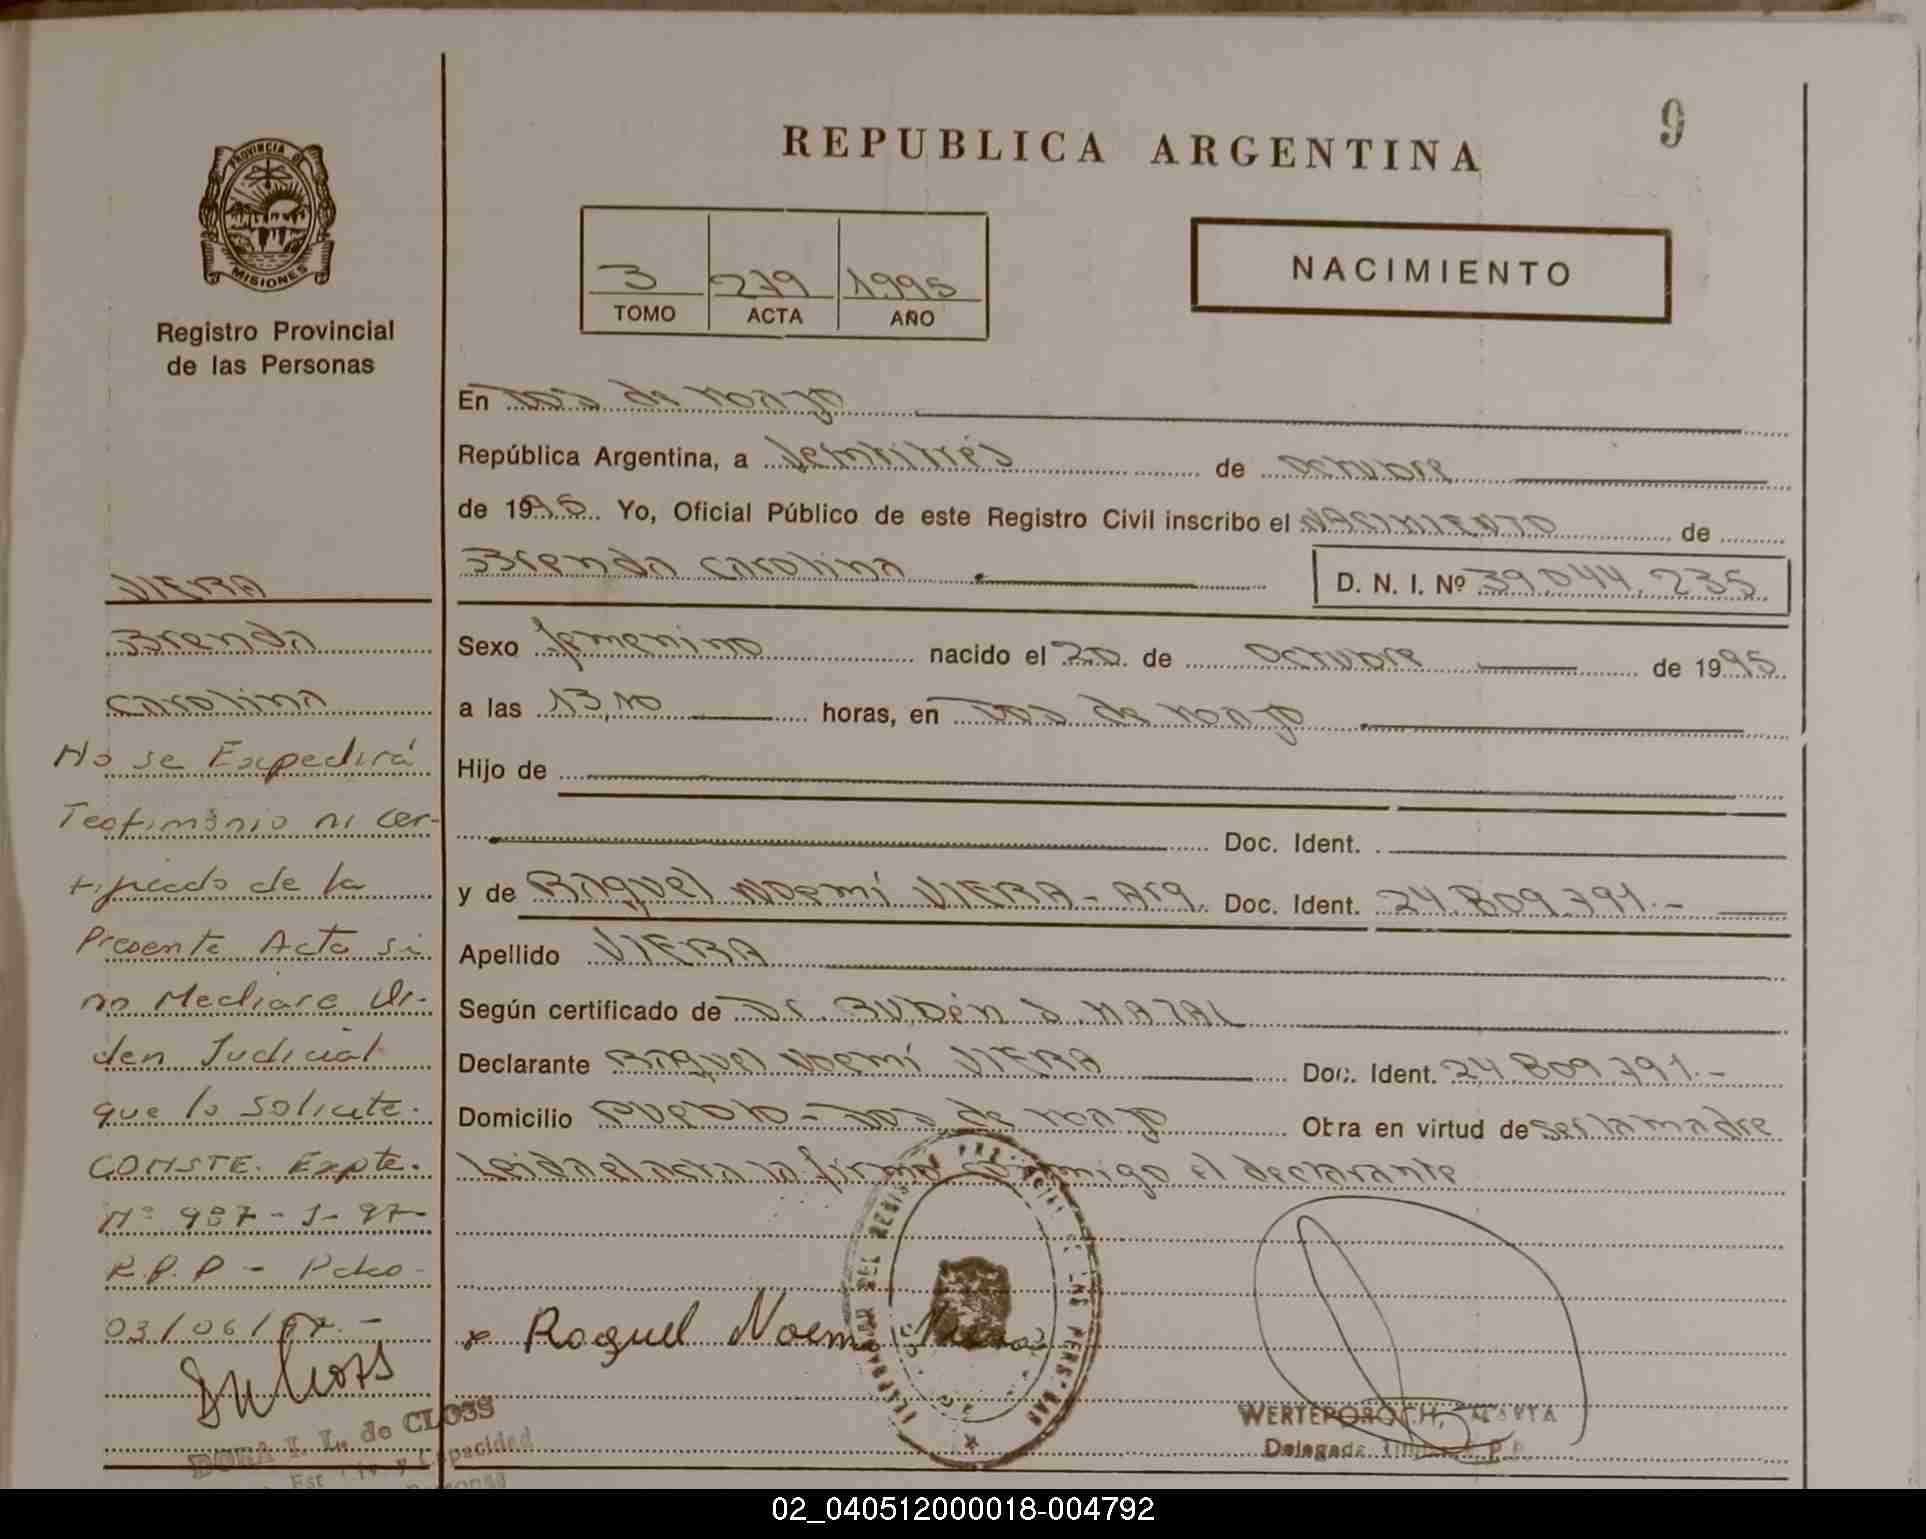 9
REPUBLICA ARGENTINA
PROVINCIA DE
MISIONES
Registro Provincial
de las Personas
3 279 1995
TOMO ACTA AÑO
NACIMIENTO
VIERA
Brenda
Carolina
No se Expedirá
Testimonio ni cer-
tificado de la
Presente Acta si
no Mediare Or-
den Judicial
que lo Solicite.
CONSTE. Expte.
Nº 987-J-97-
R.P.P - Pcko-
03/06/97.-
DORA I. L. de CLOSS
Est. Civ. y Capacidad
En Dos de Mayo
República Argentina, a Veintitrés de octubre
de 1995. Yo, Oficial Público de este Registro Civil inscribo el NACIMIENTO de
Brenda Carolina D. N. I. Nº 39.044.235
Sexo femenino nacido el 20 de octubre de 1995
a las 13,10 horas, en Dos de Mayo
Hijo de
Doc. Ident.
y de Raquel Noemí VIERA - Arg. Doc. Ident. 24.809.791.-
Apellido VIERA
Según certificado de Dr. Rubén D. NAZAL
Declarante Raquel Noemí VIERA Doc. Ident. 24.809.791.-
Domicilio Pueblo - Dos de Mayo Otra en virtud de ser la madre
Leida el acta la firma conmigo el declarante
x Raquel Noemi Viera
WERTEPOROCH, MARTA
Delegada
02_040512000018-004792